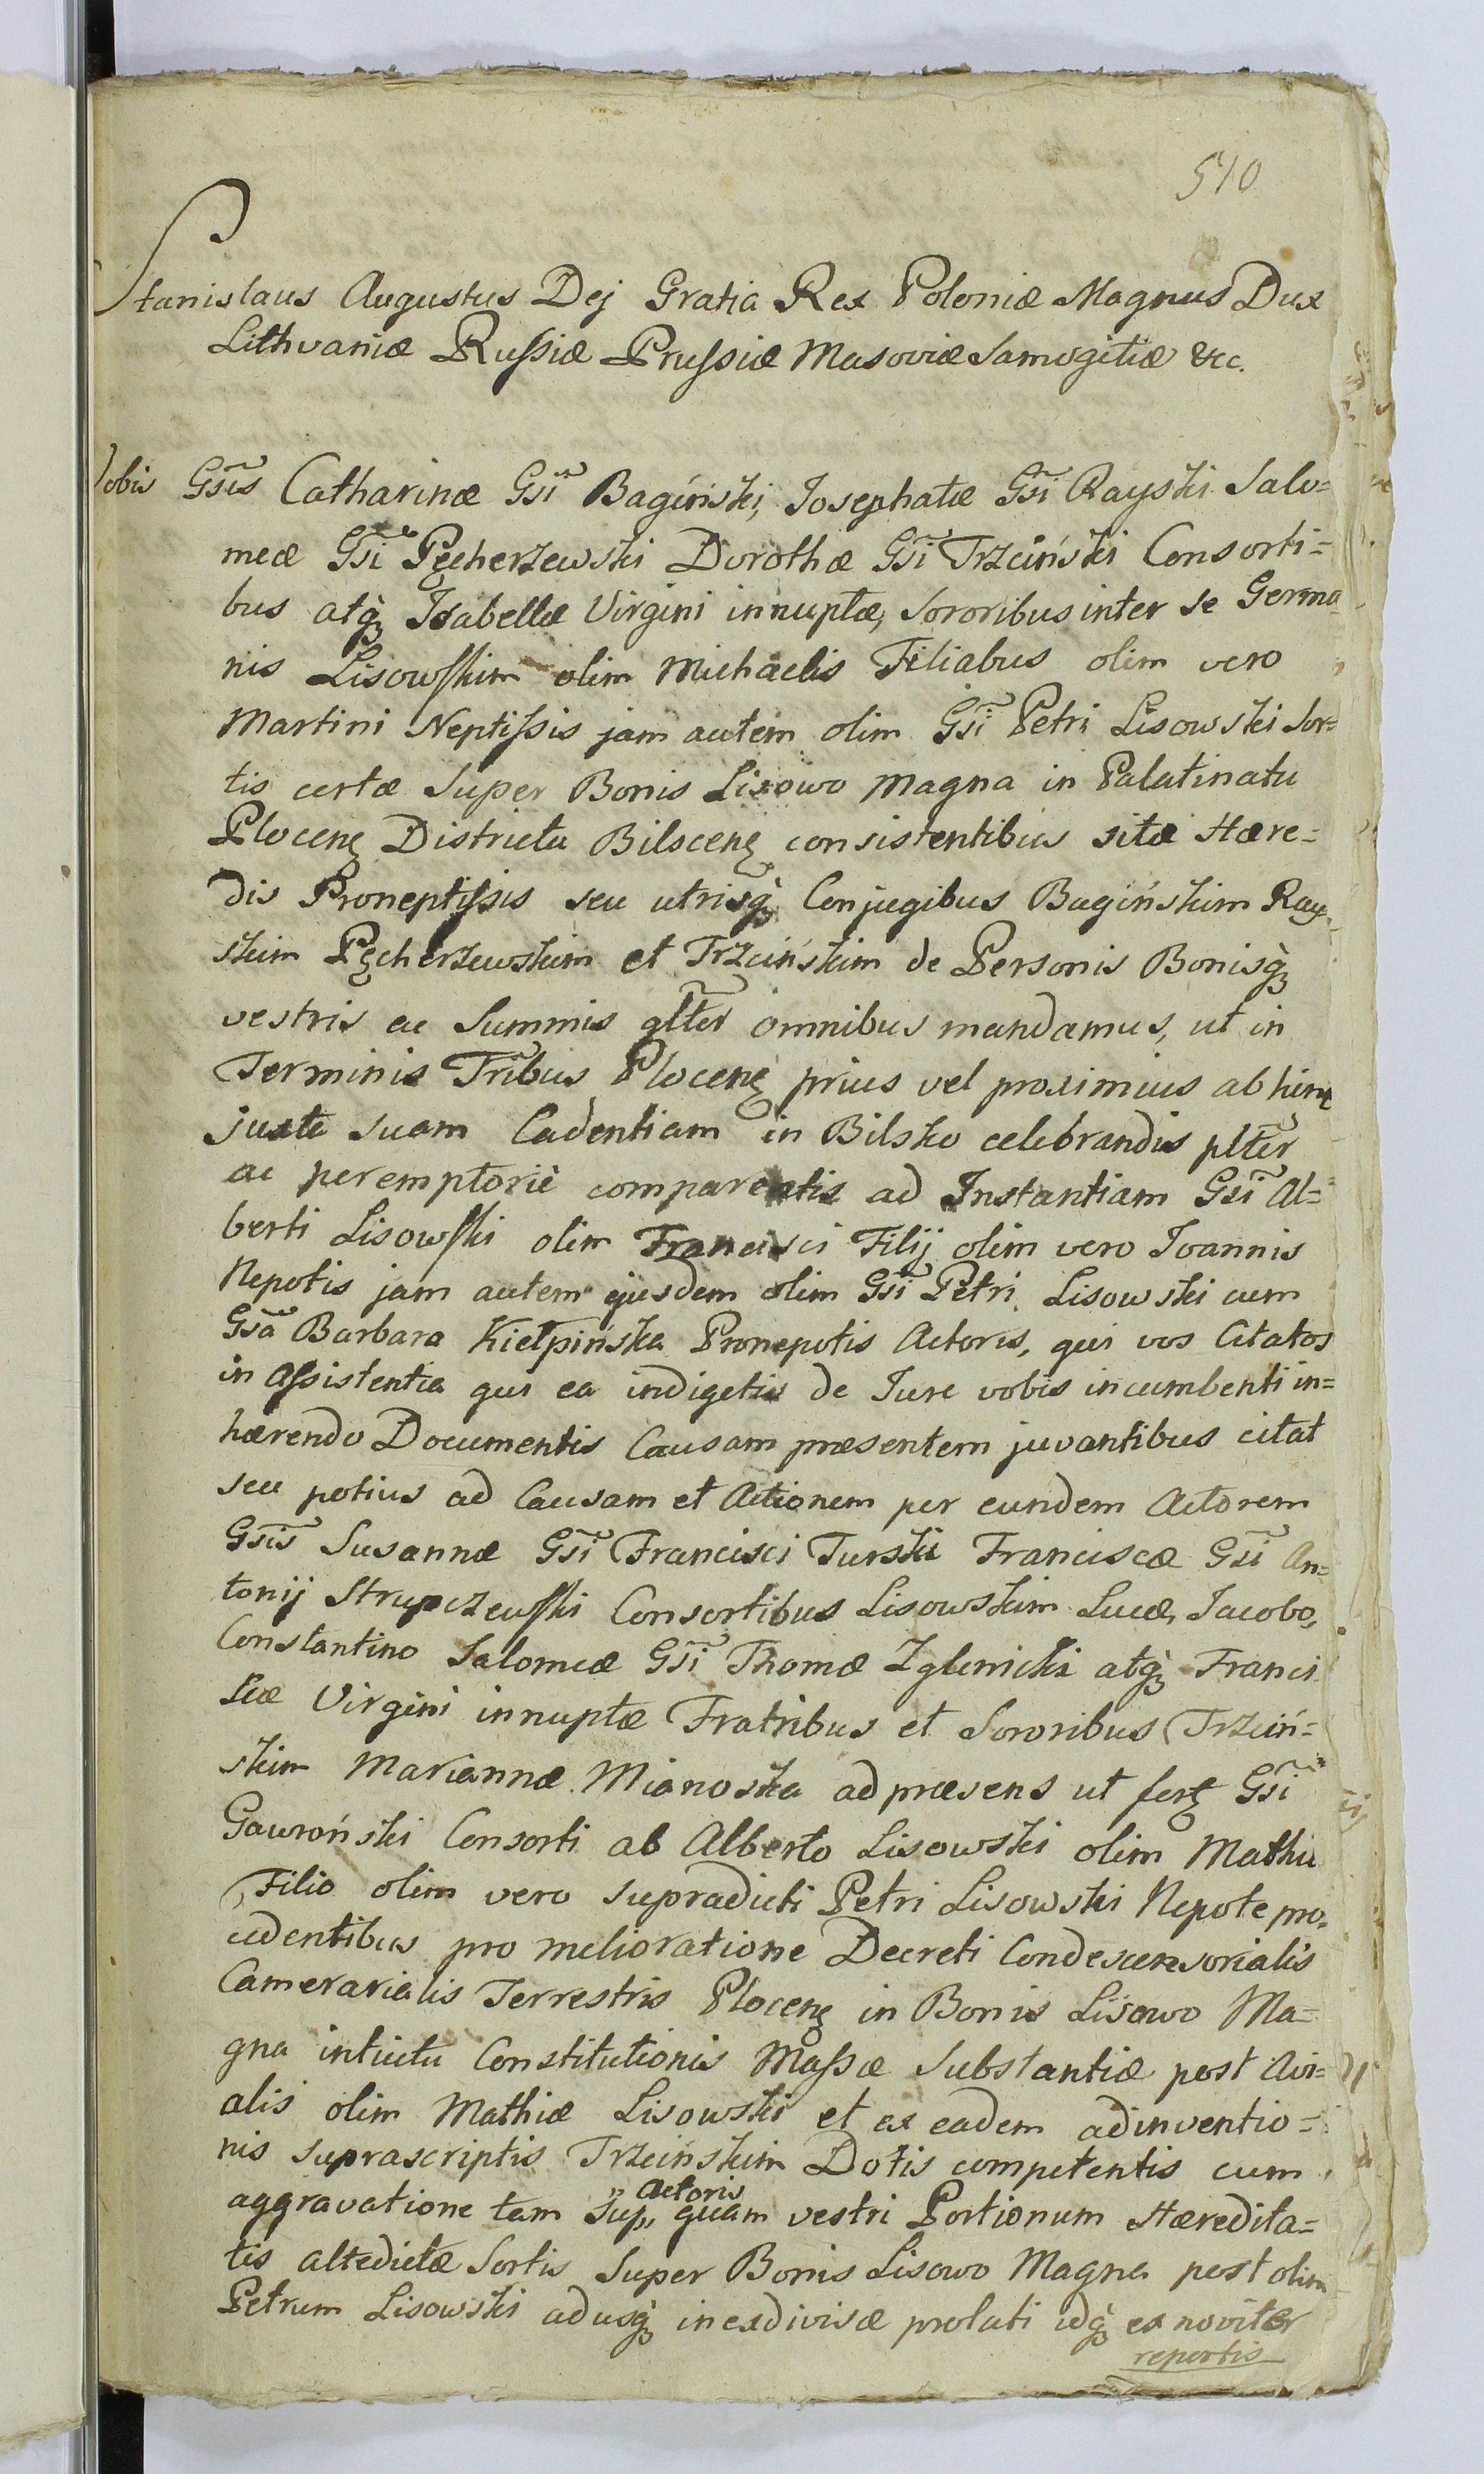 510
Stanislaus Augustus Dej Gratia Rex Poloniæ Magnus Dux
Lithvaniæ Rußiæ Prußiæ Masoviæ Samogitiæ &c.
Vobis Gsis Catharinæ Gsi Bagiński, Josephatæ Gsi Rayski Salo=
meæ Gsi Pęcherzewski Dorothæ Gsi Trzciński Consorti=
bus atqꝫ Isabellæ Virgini innuptæ, Sororibus inter se Germa
nis Lisowskim olim Michaelis Filiabus olim vero
Martini Neptißis jam autem olim Gsi Petri Lisowski Sor=
tis certæ Super Bonis Lisowo Magna in Palatinatu
Plocenę Districtu Bilscenę consistentibus sitæ Hære=
dis Proneptißis seu utrisqꝫ Conjugibus Bagińskim Ray
skim Pęcherzewskim et Trzcińskim de Personis Bonisqꝫ
vestris ac Summis gltter omnibus mandamus, ut in
Terminis Tribus Plocenę prius vel proximius abhinc
juxta suam Cadentiam in Bilsko celebrandis pltter
ac peremptoriè compareatis ad Instantiam Gsi Al=
berti Lisowski olim Francisci Filij olim vero Joannis
Nepotis jam autem ejusdem olim Gsi Petri Lisowski cum
Gsa Barbara Kiełpińska Pronepotis Actoris, qui vos Citatos
in Aßistentia qui ea indigetis de Jure vobis incumbenti in=
hærendo Documentis Causam præsentem juvantibus citat
seu potius ad Causam et Actionem per eundem Actorem
Gsis Susannæ Gsi Francisci Turski Franciscæ Gsi An=
tonij Strupczewski Consortibus Lisowskim Lucæ, Jacobo,
Constantino Salomeæ Gsi Thomæ Zglenicki atqꝫ Franci
scæ Virgini innuptæ Fratribus et Sororibus Trzciń=
skim Mariannæ Mianoska ad præsens ut fertꝫ Gsi
Gawroński Consorti ab Alberto Lisowski olim Mathiæ
Filio olim vero supradicti Petri Lisowski Nepote pro=
cedentibus pro melioratione Decreti Condescensorialis
Camerarialis Terrestris Plocenę in Bonis Lisowo Ma=
gna intuitu Constitutionis Maßæ Substantiæ post Avi=
alis olim Mathiæ Lisowski et ex eadem adinventio=
nis suprascriptis Trzcińskim Dotis competentis cum
aggravatione tam Sup, Actoris quam vestri Portionum Hæredita=
tis altedictæ Sortis Super Bonis Lisowo Magna post olim
Petrum Lisowski adusqꝫ inexdivisæ prolati idqꝫ ex noviter
repertis